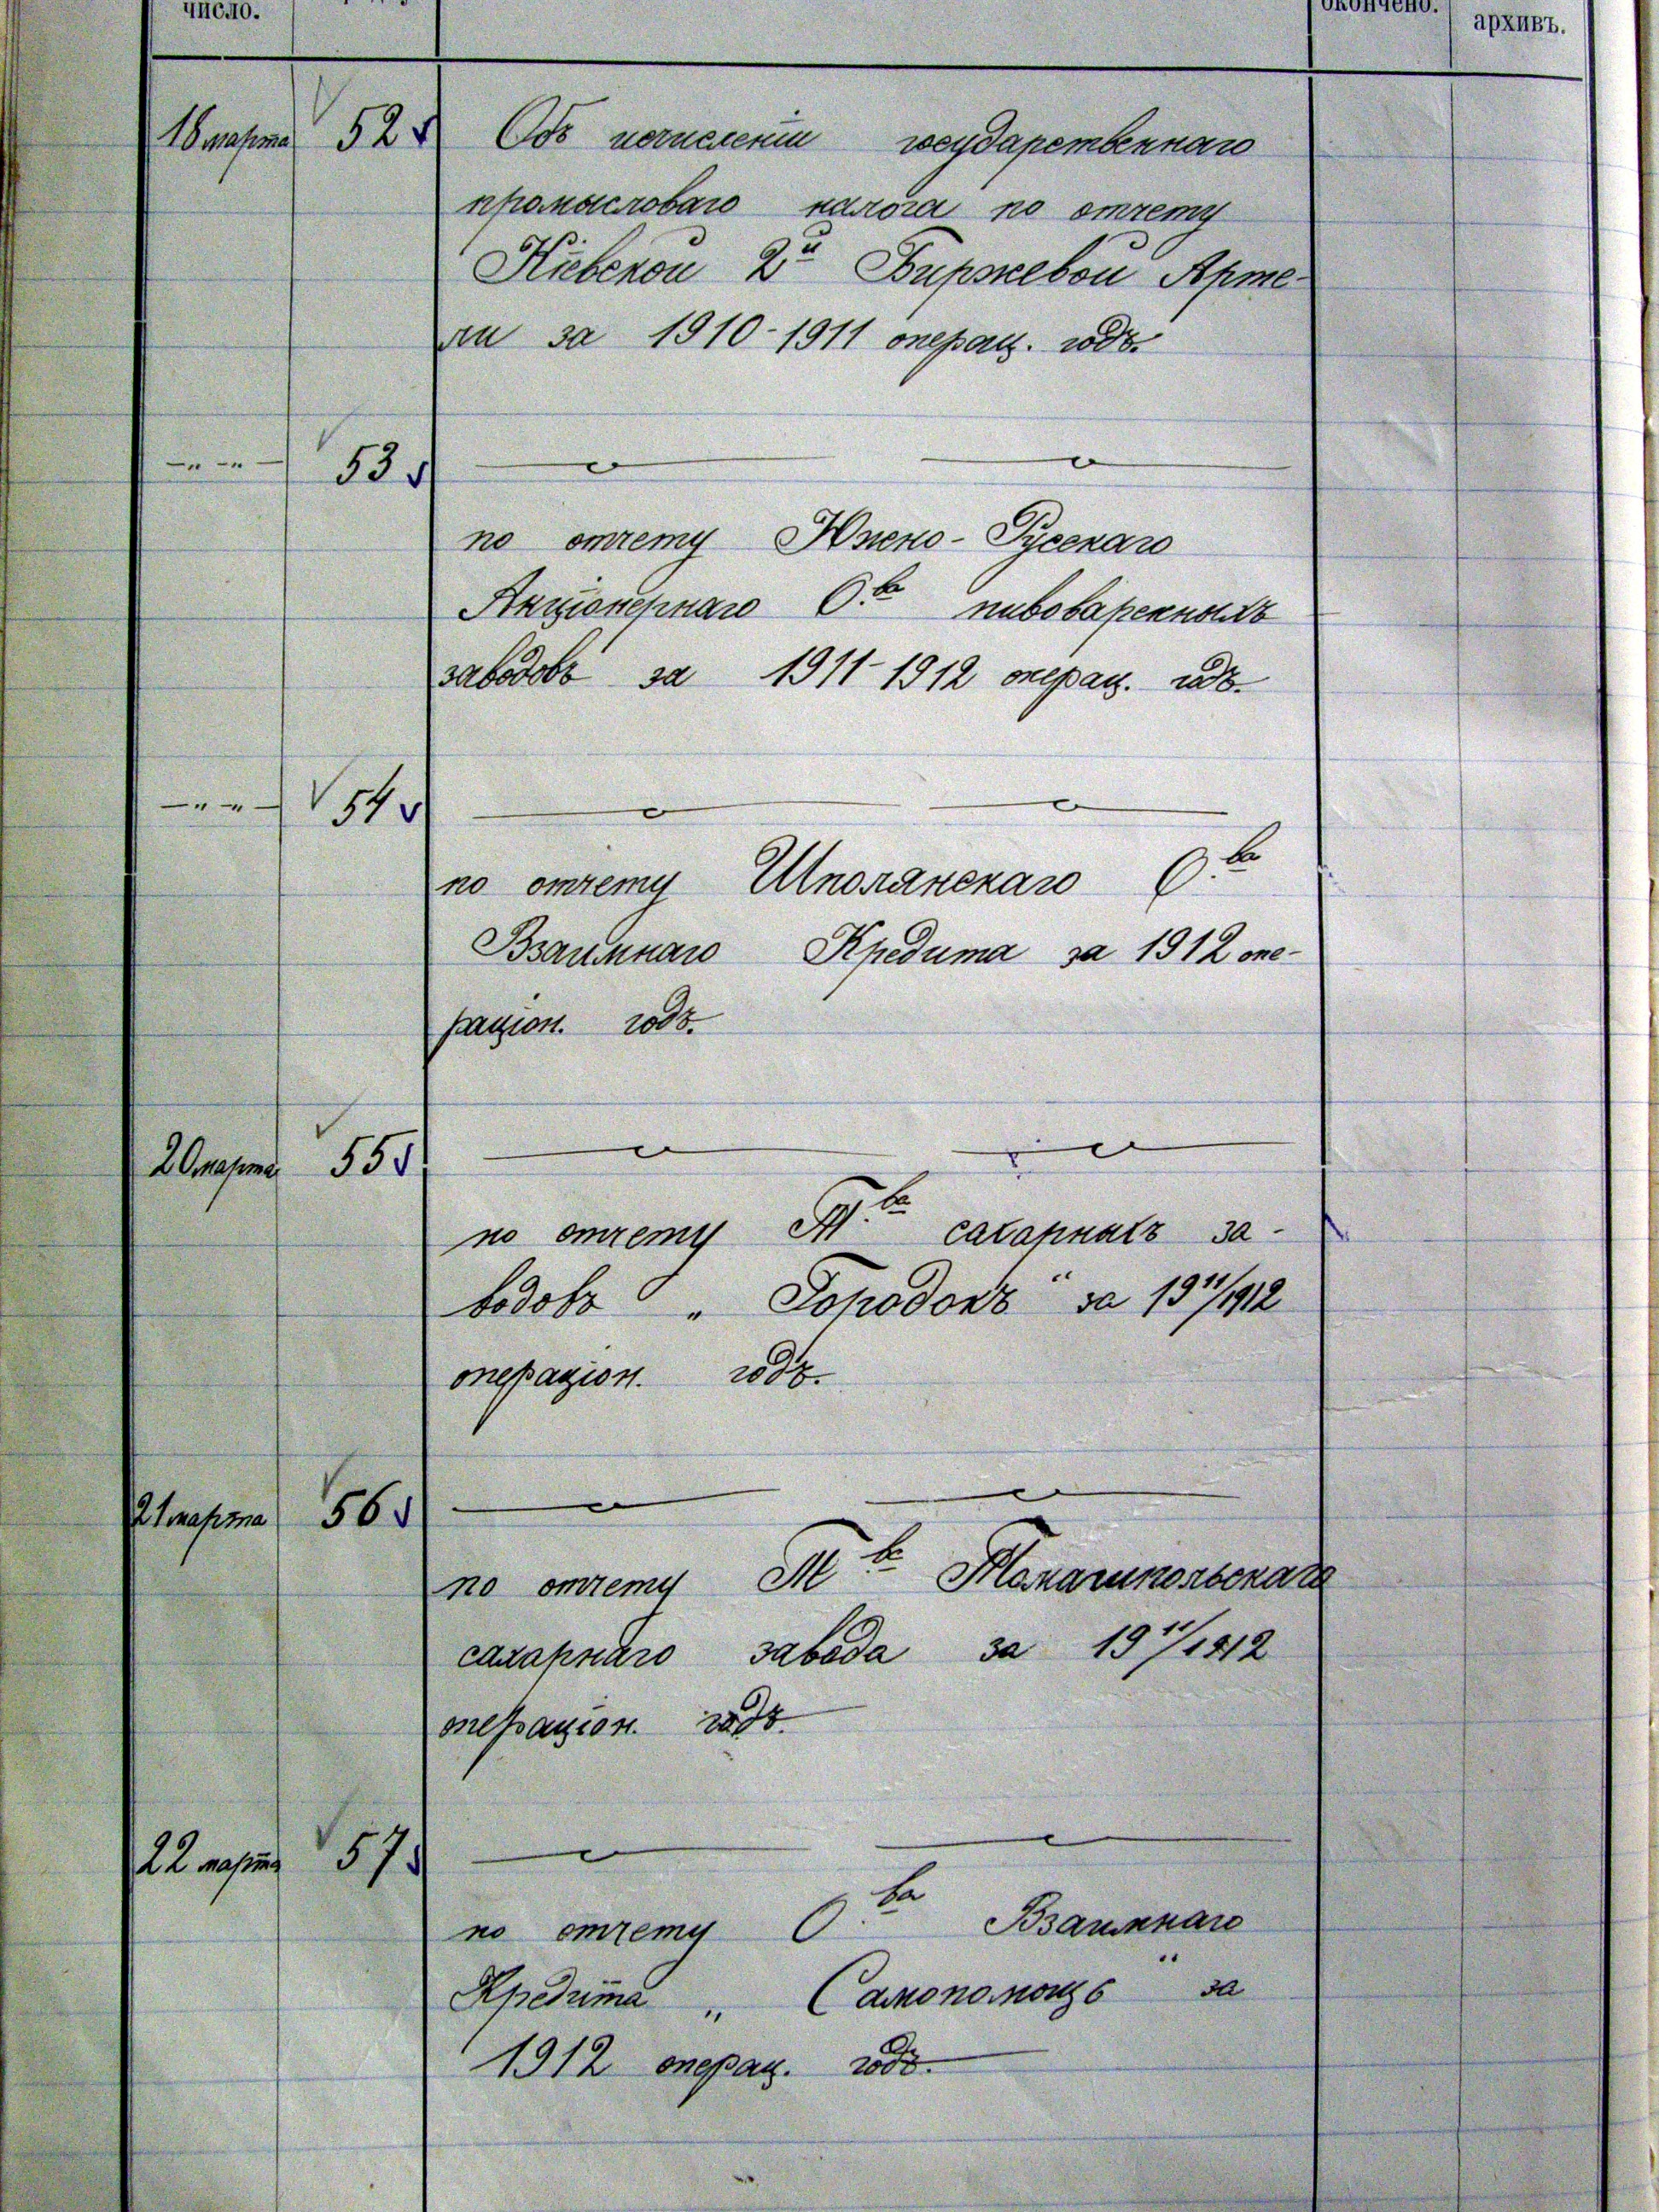 число.
окончено.
архивъ.
18 марта 52 Объ исчисленіи государственнаго
промысловаго налога по отчету
Кіевской 2й Биржевой Арте-
ли за 1910-1911 операц. годъ.
—"—"— 53
по отчету Южно-Русскаго
Акціонернаго О.ва пивоваренныхъ
заводовъ за 1911-1912 операц. годъ.
—"—"— 54
по отчету Шполянскаго О.ва
Взаимнаго Кредита за 1912 опе-
раціон. годъ.
20 марта 55
по отчету Т.ва сахарныхъ за-
водовъ „Городокъ“ за 1911/1912
операціон. годъ.
21 марта 56
по отчету Т.ва Томашпольскаго
сахарнаго завода за 1911/1912
операціон. годъ.
22 марта 57
по отчету О.ва Взаимнаго
Кредита „Самопомощь“ за
1912 операц. годъ.